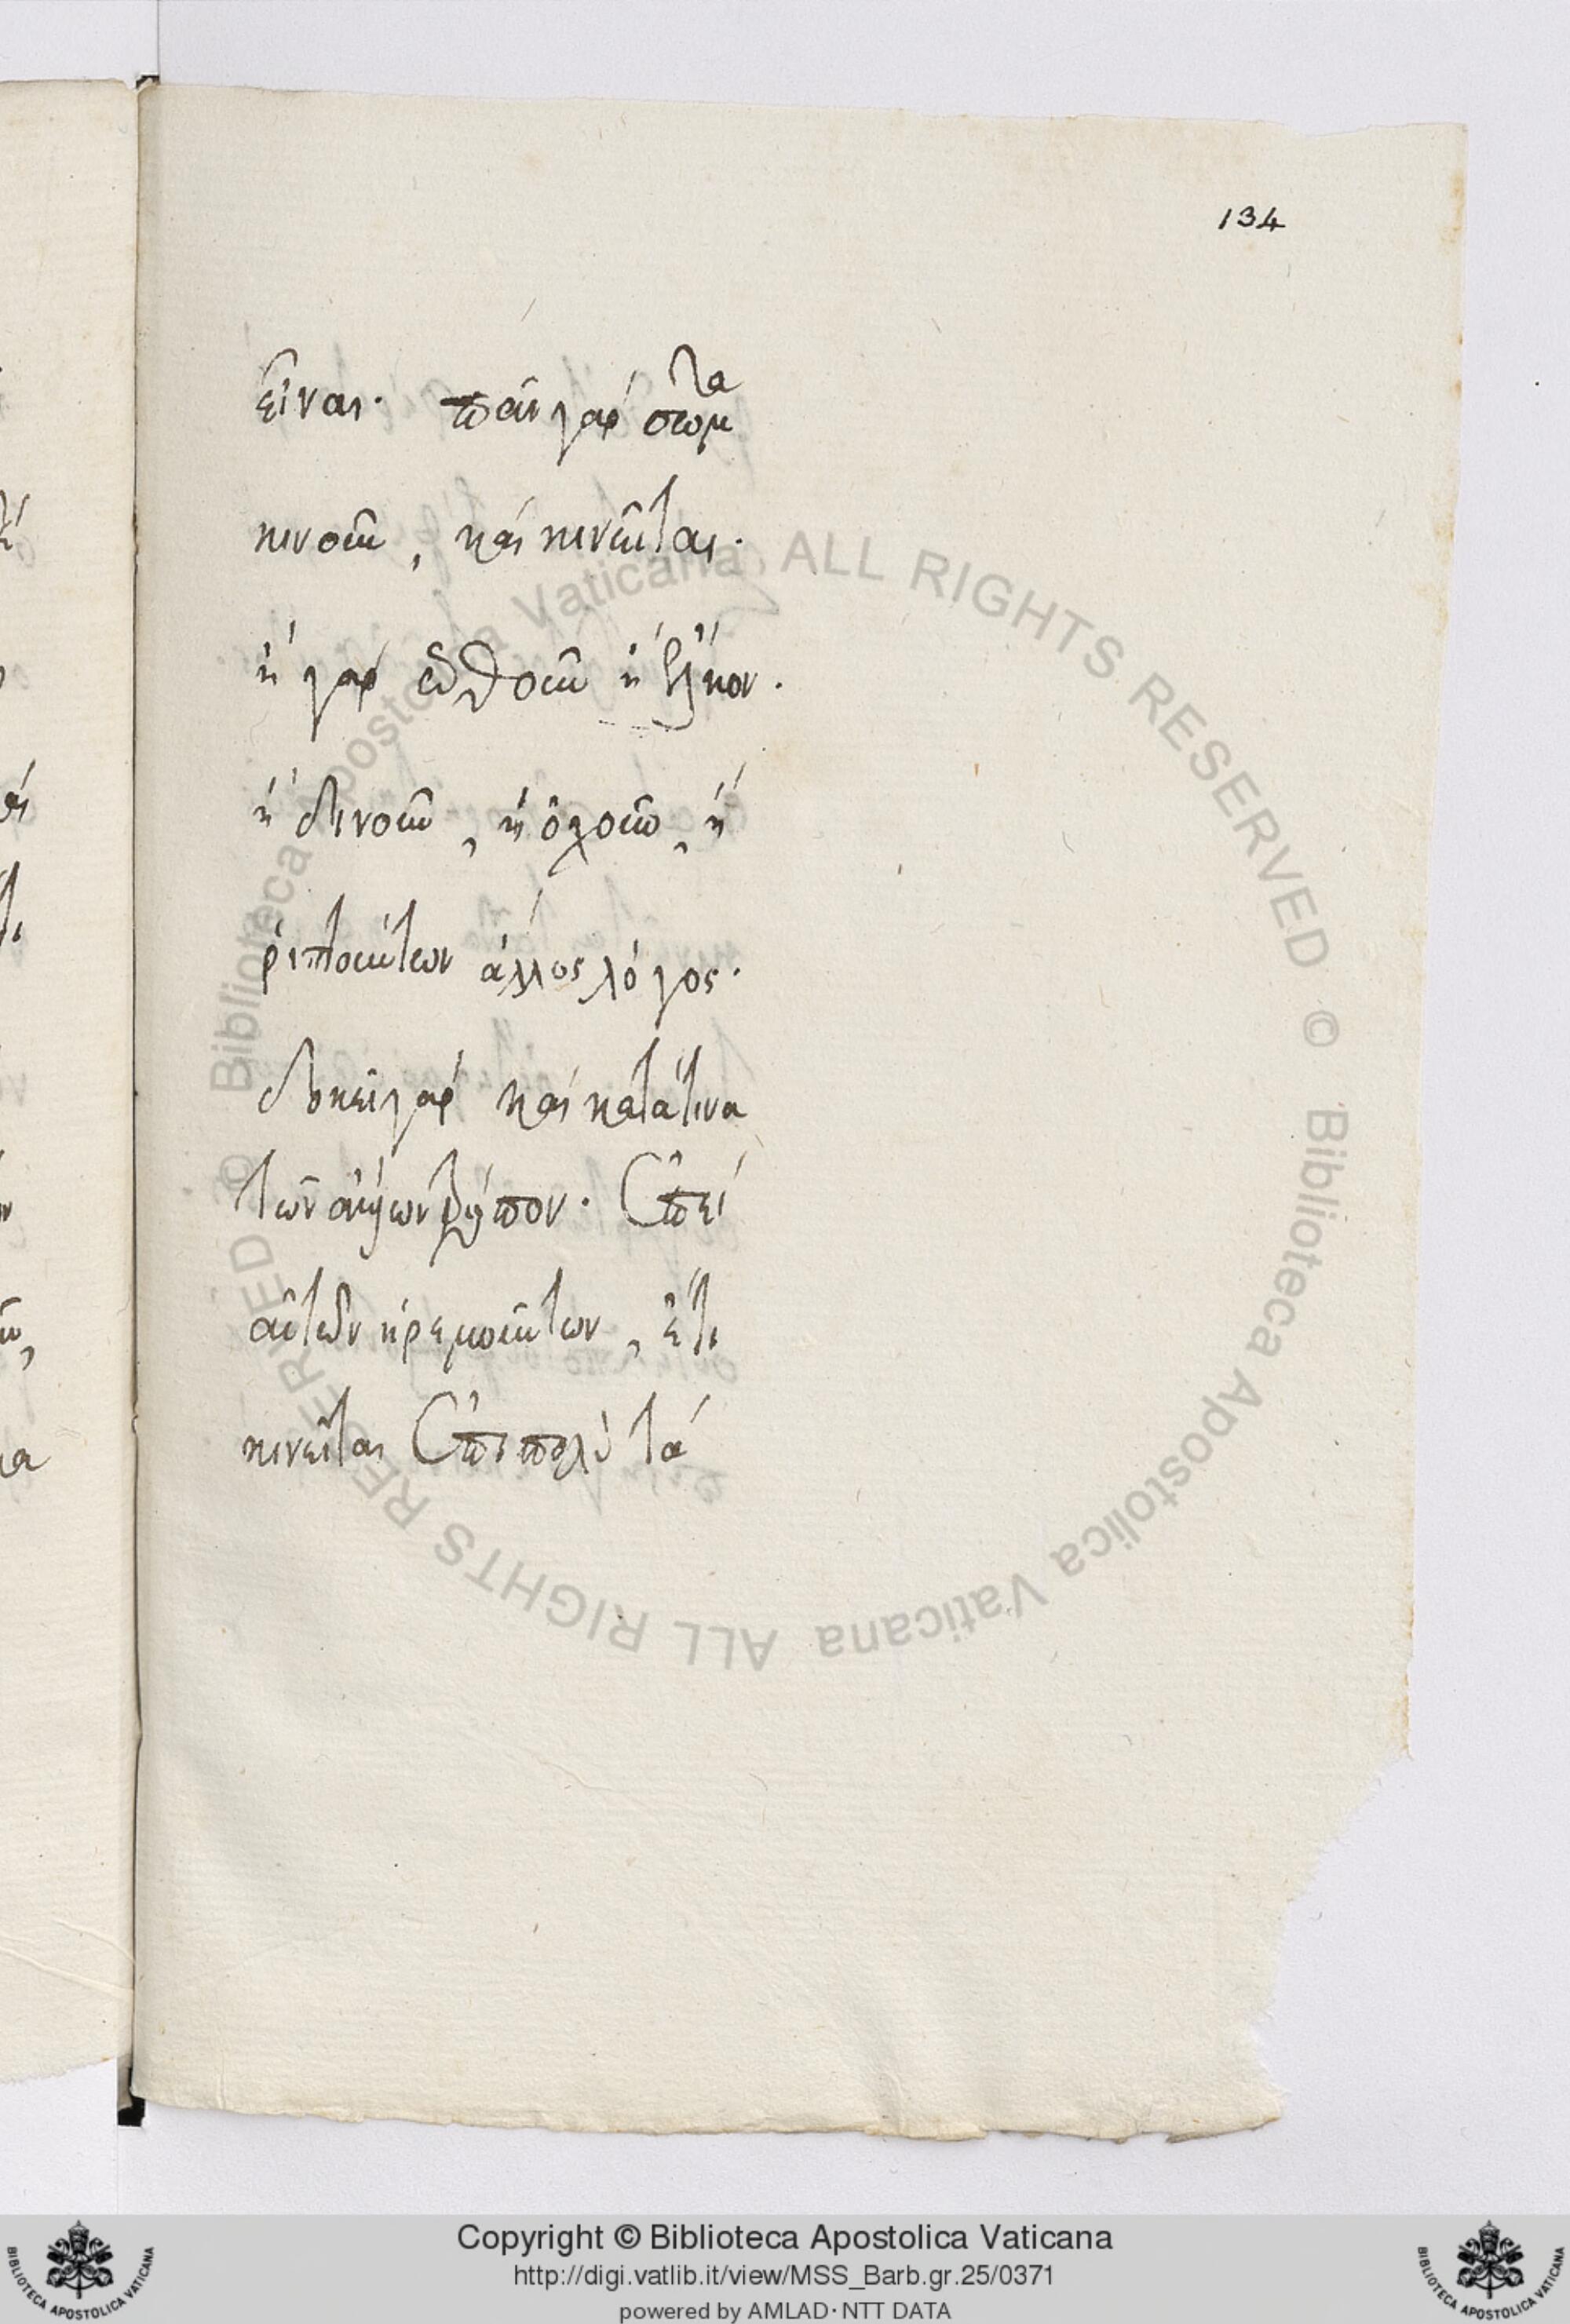 εἶναι. πᾶν γὰρ σώματα
κινοῦν, καὶ κινεῖται.
ἢ γὰρ ὠθοῦν ἢ ἕλκον.
ἢ δινοῦν, ἢ ὀχοῦν, ἢ
ῥιπτούντων ἄλλος λόγος.
δοκεῖ γὰρ καὶ κατά τινα
τῶν τρόπον. ἐπεὶ
αὐτῶν ἠρεμούντων, ἔτι
κινεῖται ἐπὶ πολὺ τὰ
134
© Biblioteca Apostolica Vaticana ALL RIGHTS RESERVED © Biblioteca Apostolica Vaticana ALL RIGHTS RESERVED
Copyright © Biblioteca Apostolica Vaticana
http://digi.vatlib.it/view/MSS_Barb.gr.25/0371
powered by AMLAD·NTT DATA
BIBLIOTECA APOSTOLICA VATICANA
BIBLIOTECA APOSTOLICA VATICANA